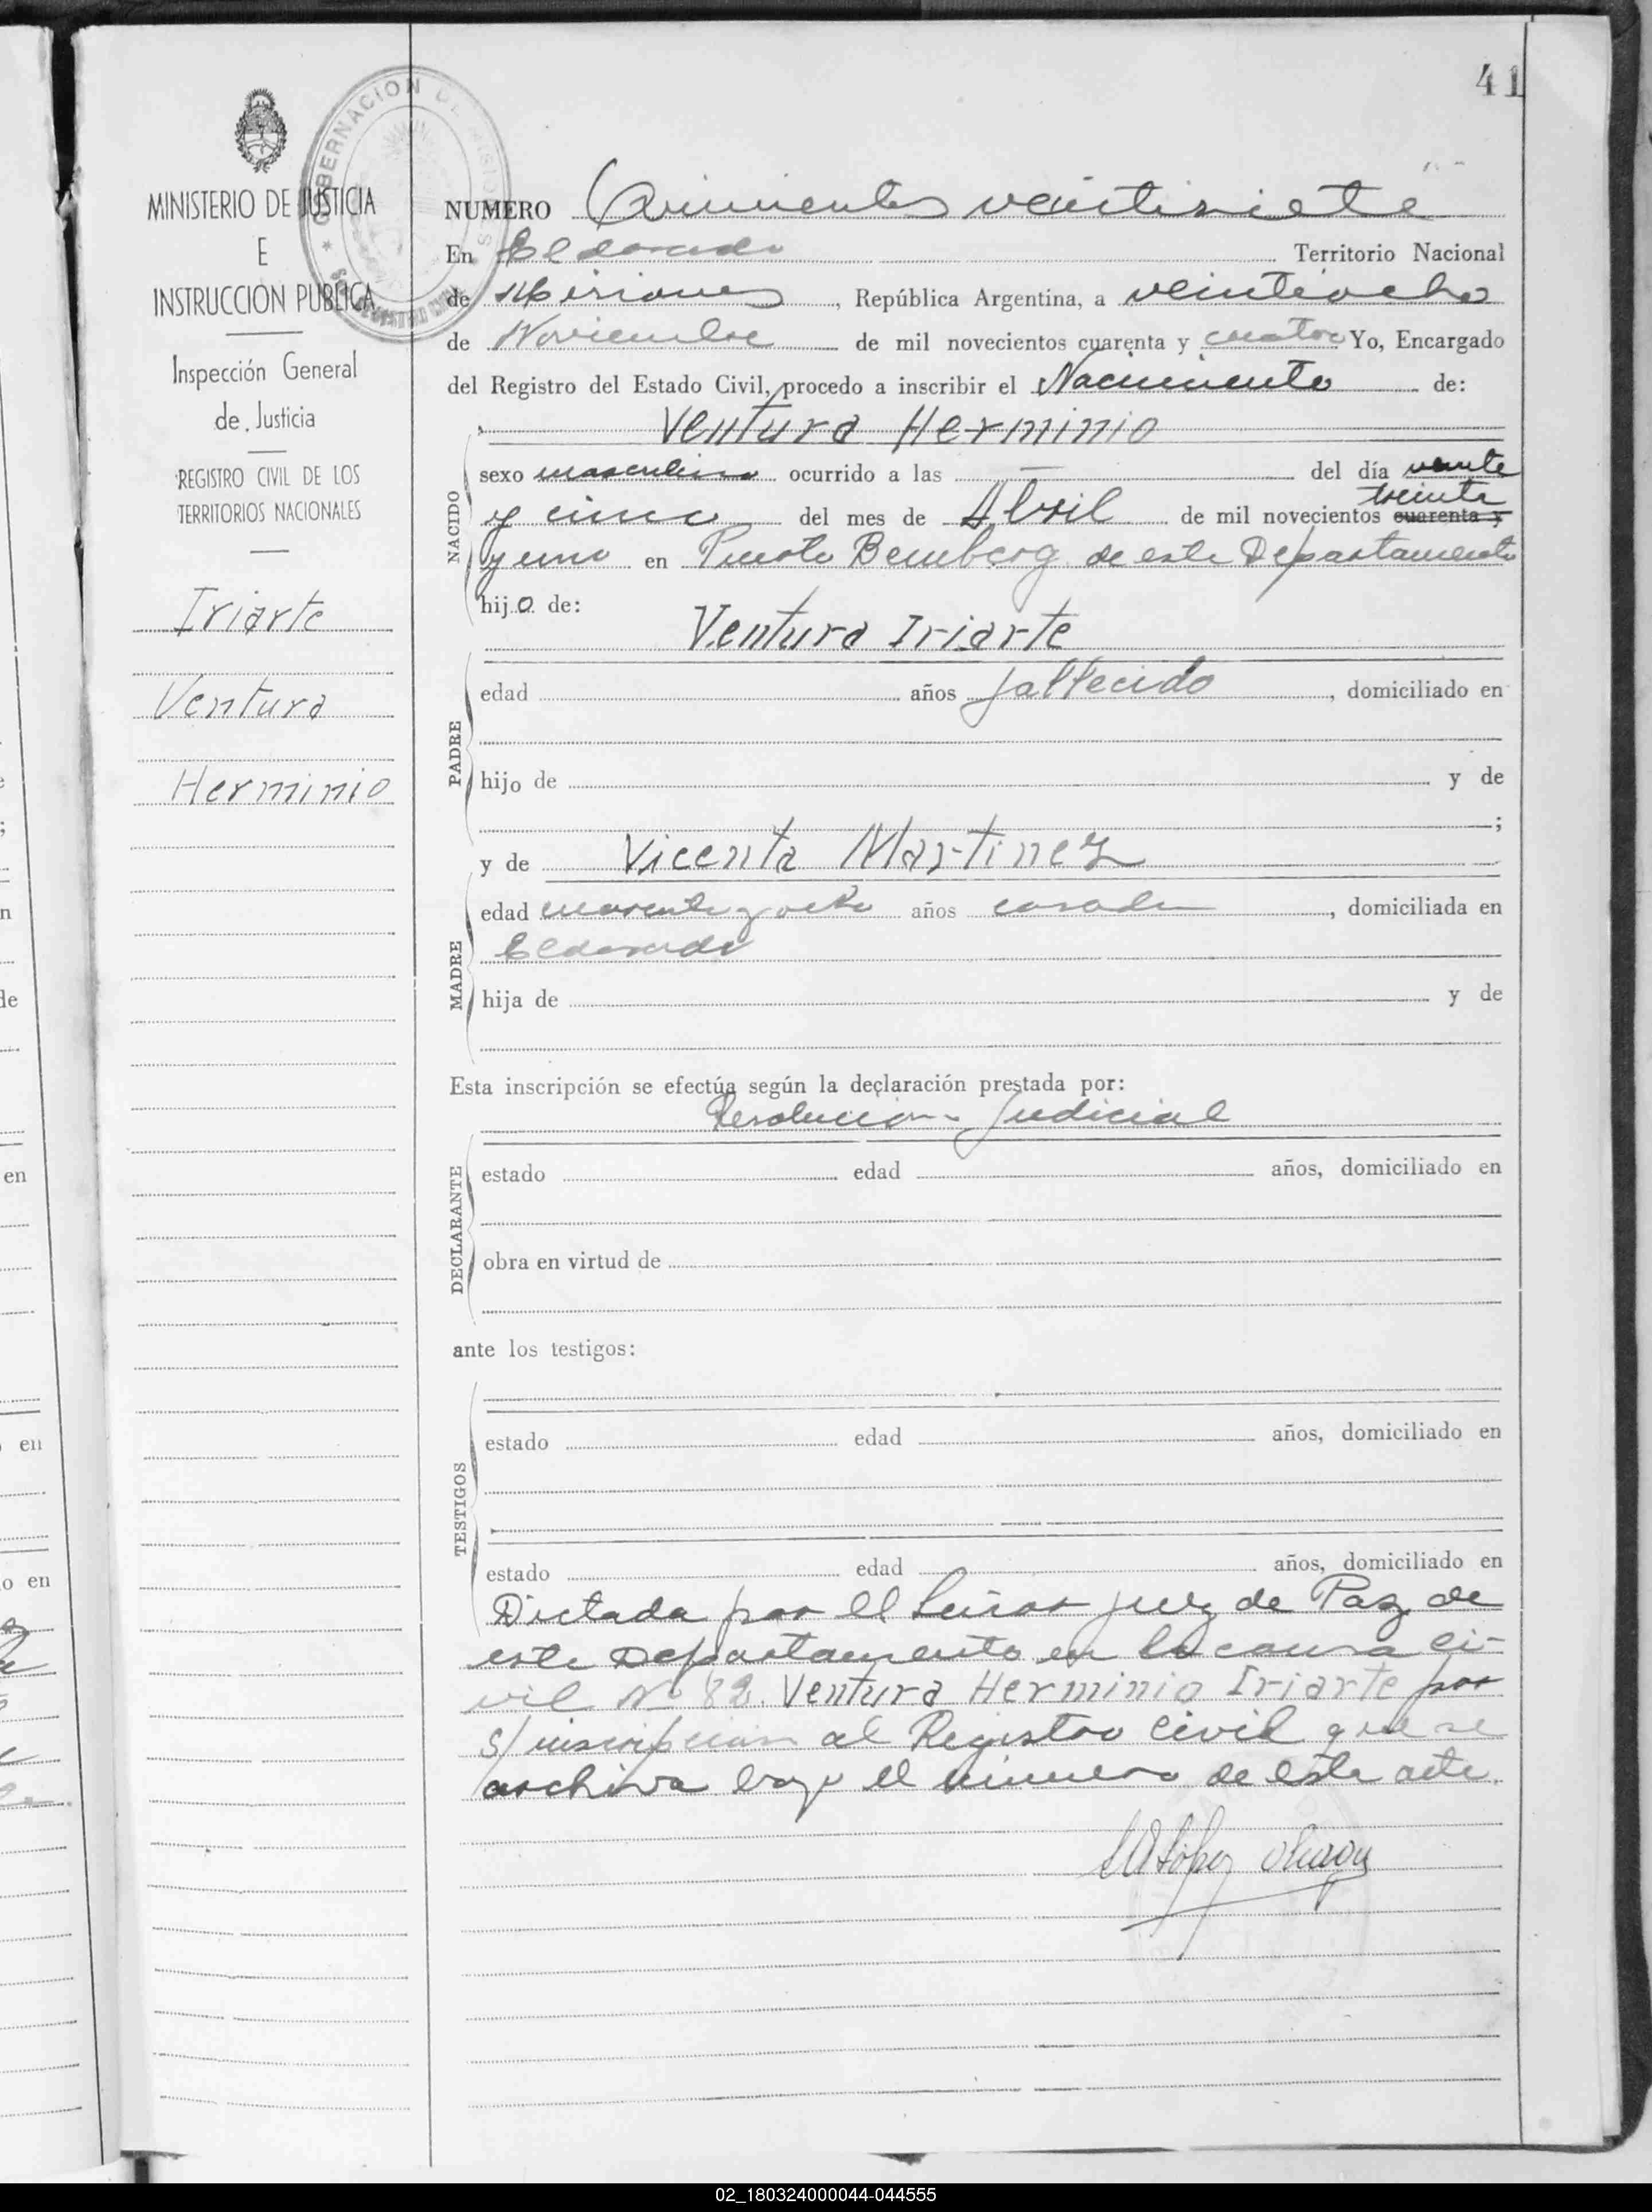 41
MINISTERIO DE JUSTICIA
E
INSTRUCCION PUBLICA
Inspección General
de Justicia
REGISTRO CIVIL DE LOS
TERRITORIOS NACIONALES
Iriarte
Ventura
Herminio
GOBERNACION DE MISIONES
NUMERO Quinientos veintisiete
En Eldorado Territorio Nacional
de Misiones, República Argentina, a veintiocho
de Noviembre de mil novecientos cuarenta y cuatro Yo, Encargado
del Registro del Estado Civil, procedo a inscribir el Nacimiento de:
Ventura Herminio
NACIDO
sexo masculino ocurrido a las — del día veinte
y cinco del mes de Abril de mil novecientos cuarenta y treinta
y uno en Puerto Bemberg de este Departamento
hijo de:
Ventura Iriarte
PADRE
edad años fallecido, domiciliado en
hijo de y de
;
y de Vicenta Martinez
MADRE
edad cuarenta y ocho años casada, domiciliada en
Eldorado
hija de y de
Esta inscripción se efectúa según la declaración prestada por:
Resolucion Judicial
DECLARANTE
estado edad años, domiciliado en
obra en virtud de
ante los testigos:
TESTIGOS
estado edad años, domiciliado en
estado edad años, domiciliado en
Dictada por el Señor juez de Paz de
este Departamento en la causa ci-
vil No 82. Ventura Herminio Iriarte por
s/ inscripcion al Registro civil que se
archiva bajo el numero de este acta.
02_180324000044-044555